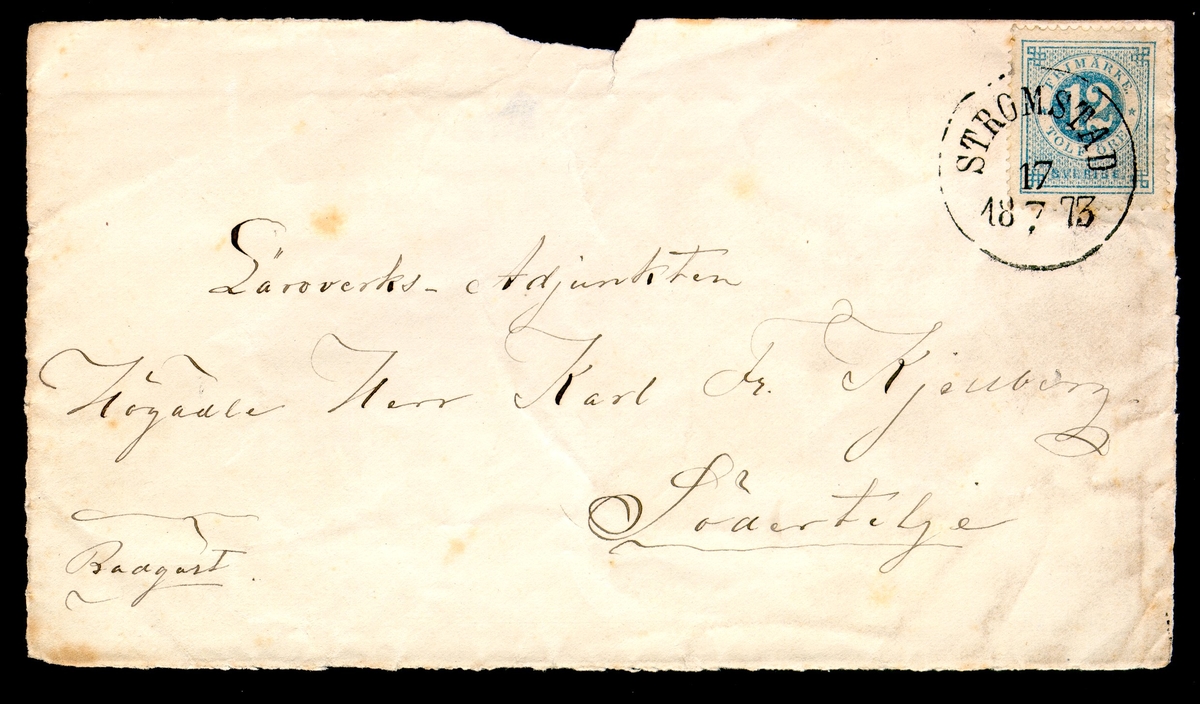 FRIMÄRKE
12
TOLF ÖRE
SVERIGE
STRÖMSTAD
17
18 7 73
Läroverks-Adjunkten
Högädle Herr Karl Fr. Kjellberg.
Södertelje
Badgäst.